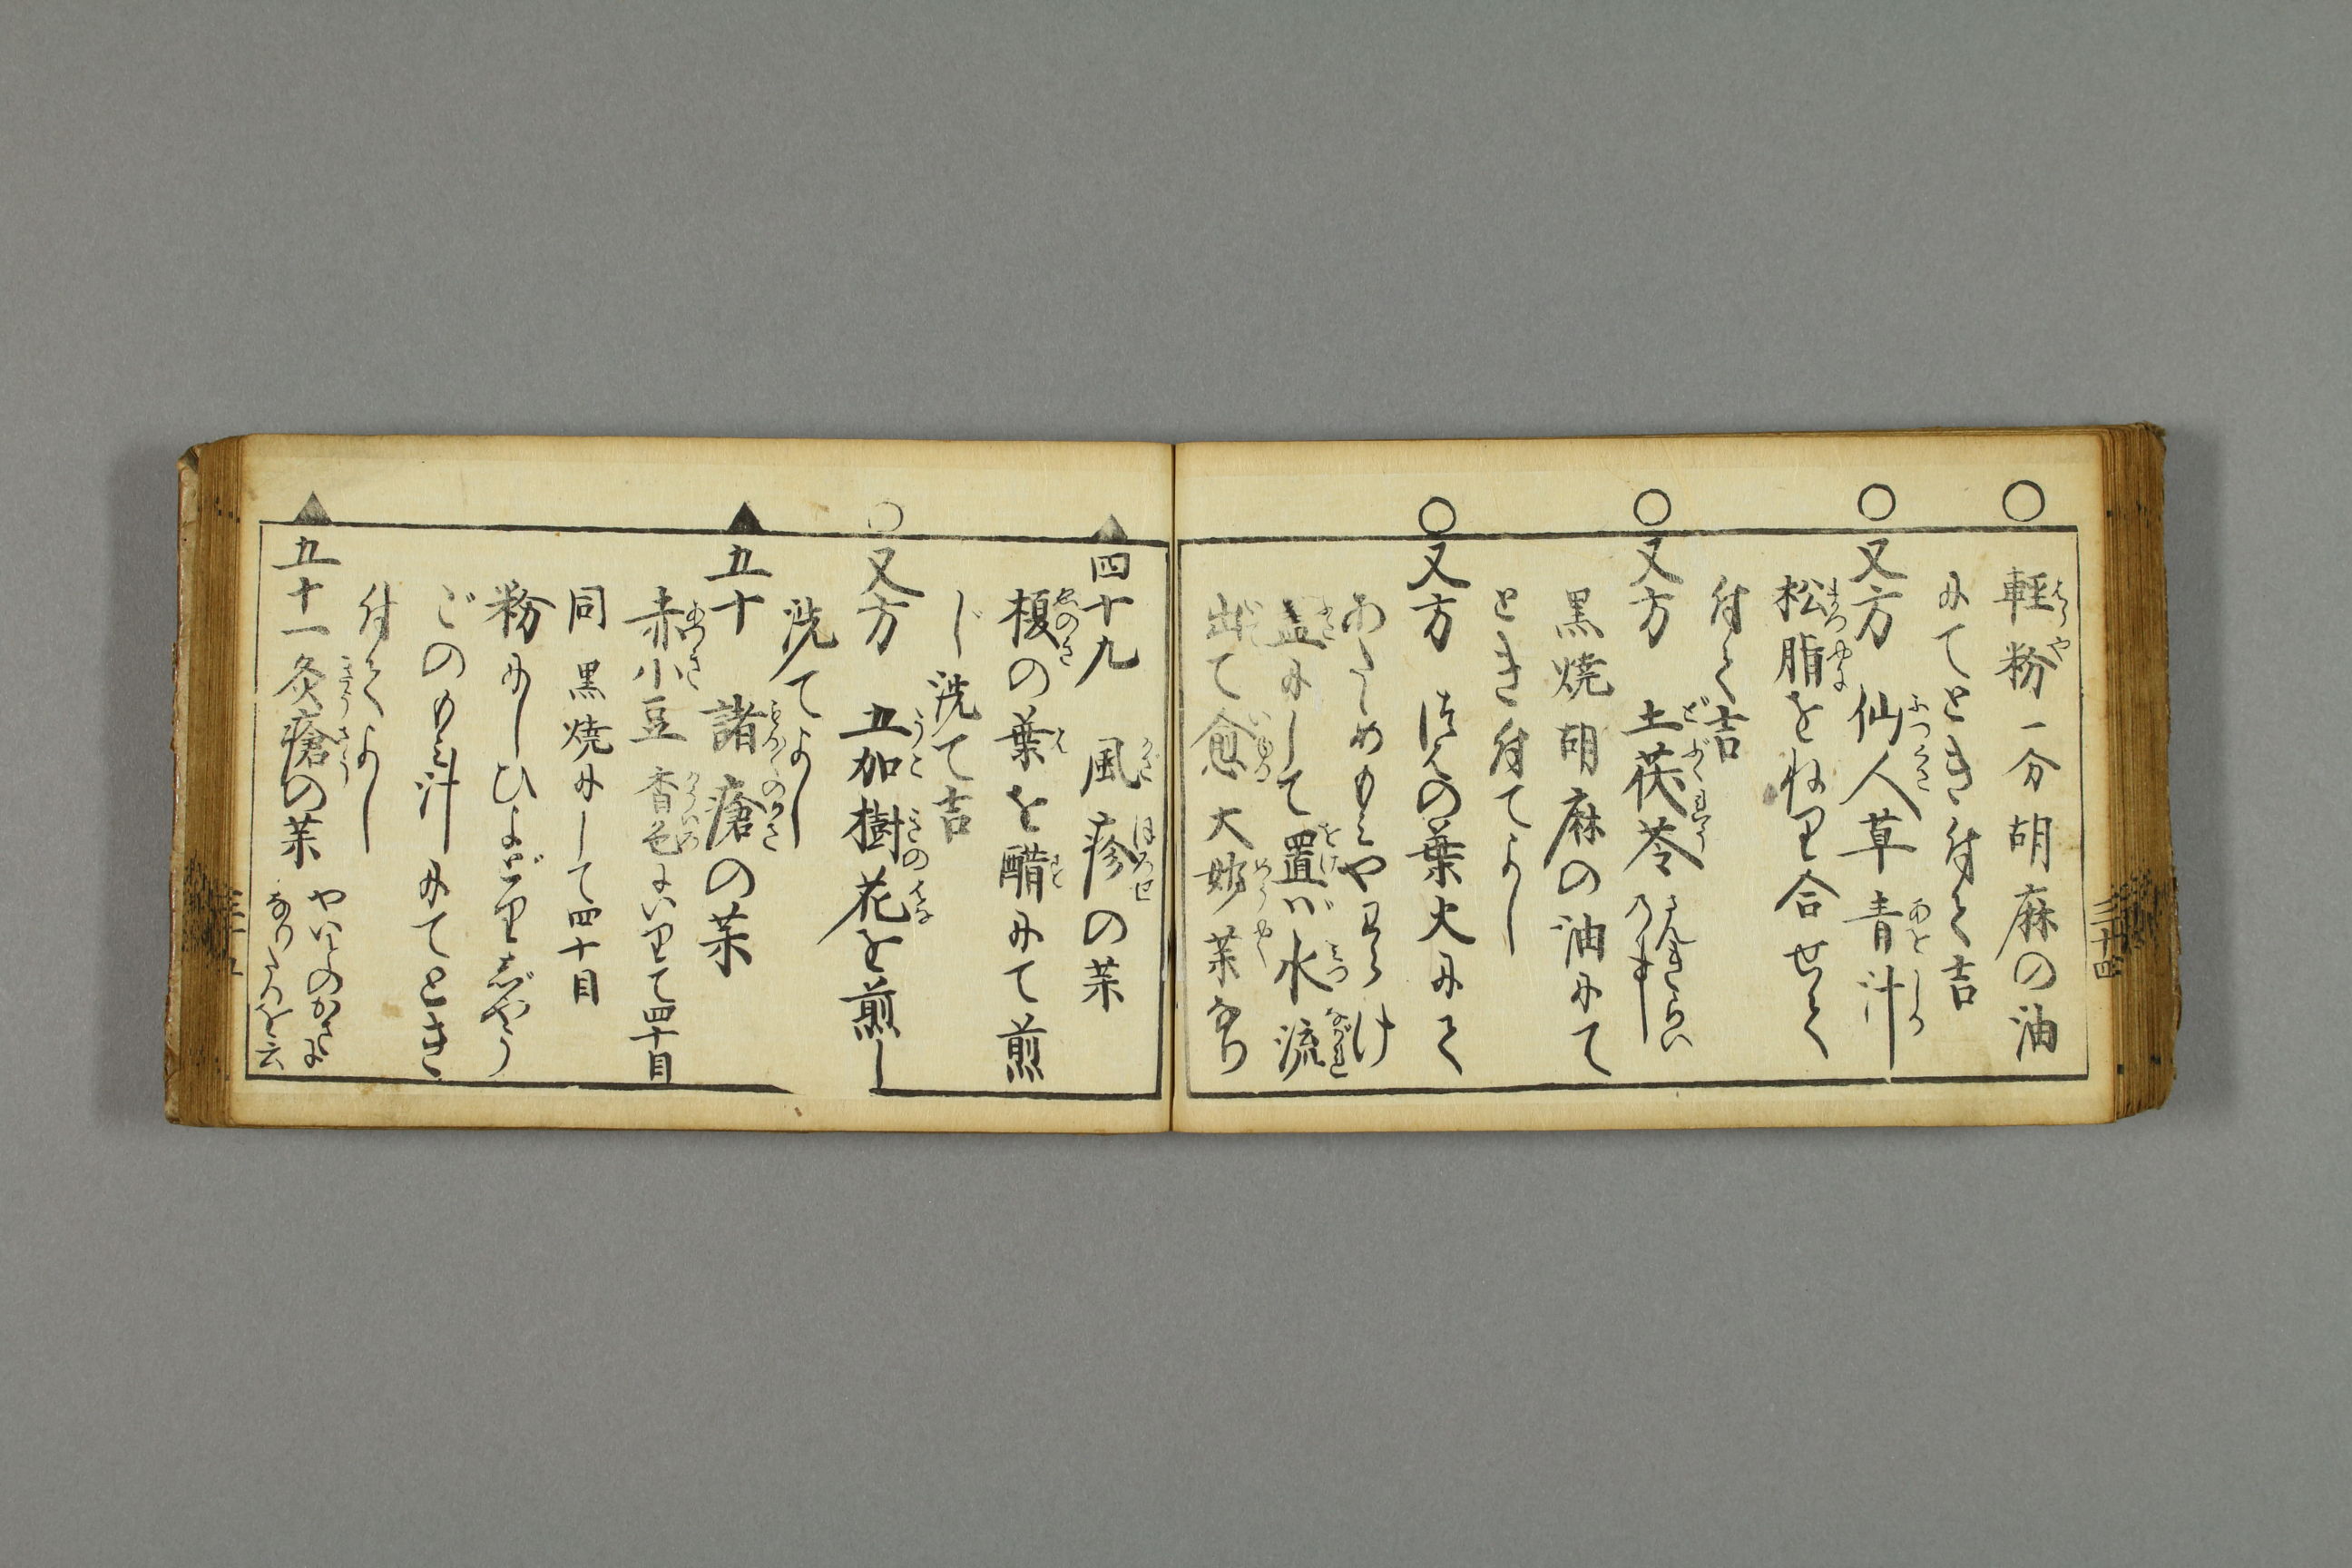 ○ 軽粉一分胡麻の油
にてとき付て吉
○又方 仙人草青汁
松脂をねり合せて
付て吉
○又方 土茯苓 さんきらい のすし
黒焼胡麻の油にて
とき付てよし
○又方 の葉火にて
あたゝめもみやわらけ
蓋にして置バ水流
出て愈大妙薬なり
▲四十九 風疹の薬
榎の葉を醋にて煎
じ洗て吉
○又方 五加樹花を煎し
洗てよし
▲五十 諸瘡の薬
赤小豆 香色にいりて四十目
同 黒焼にして四十目
粉にしひよどりじやう
ごのもミ汁にてとき
付てよし
▲五十一灸瘡の薬 やいとのかさに
云
三十四